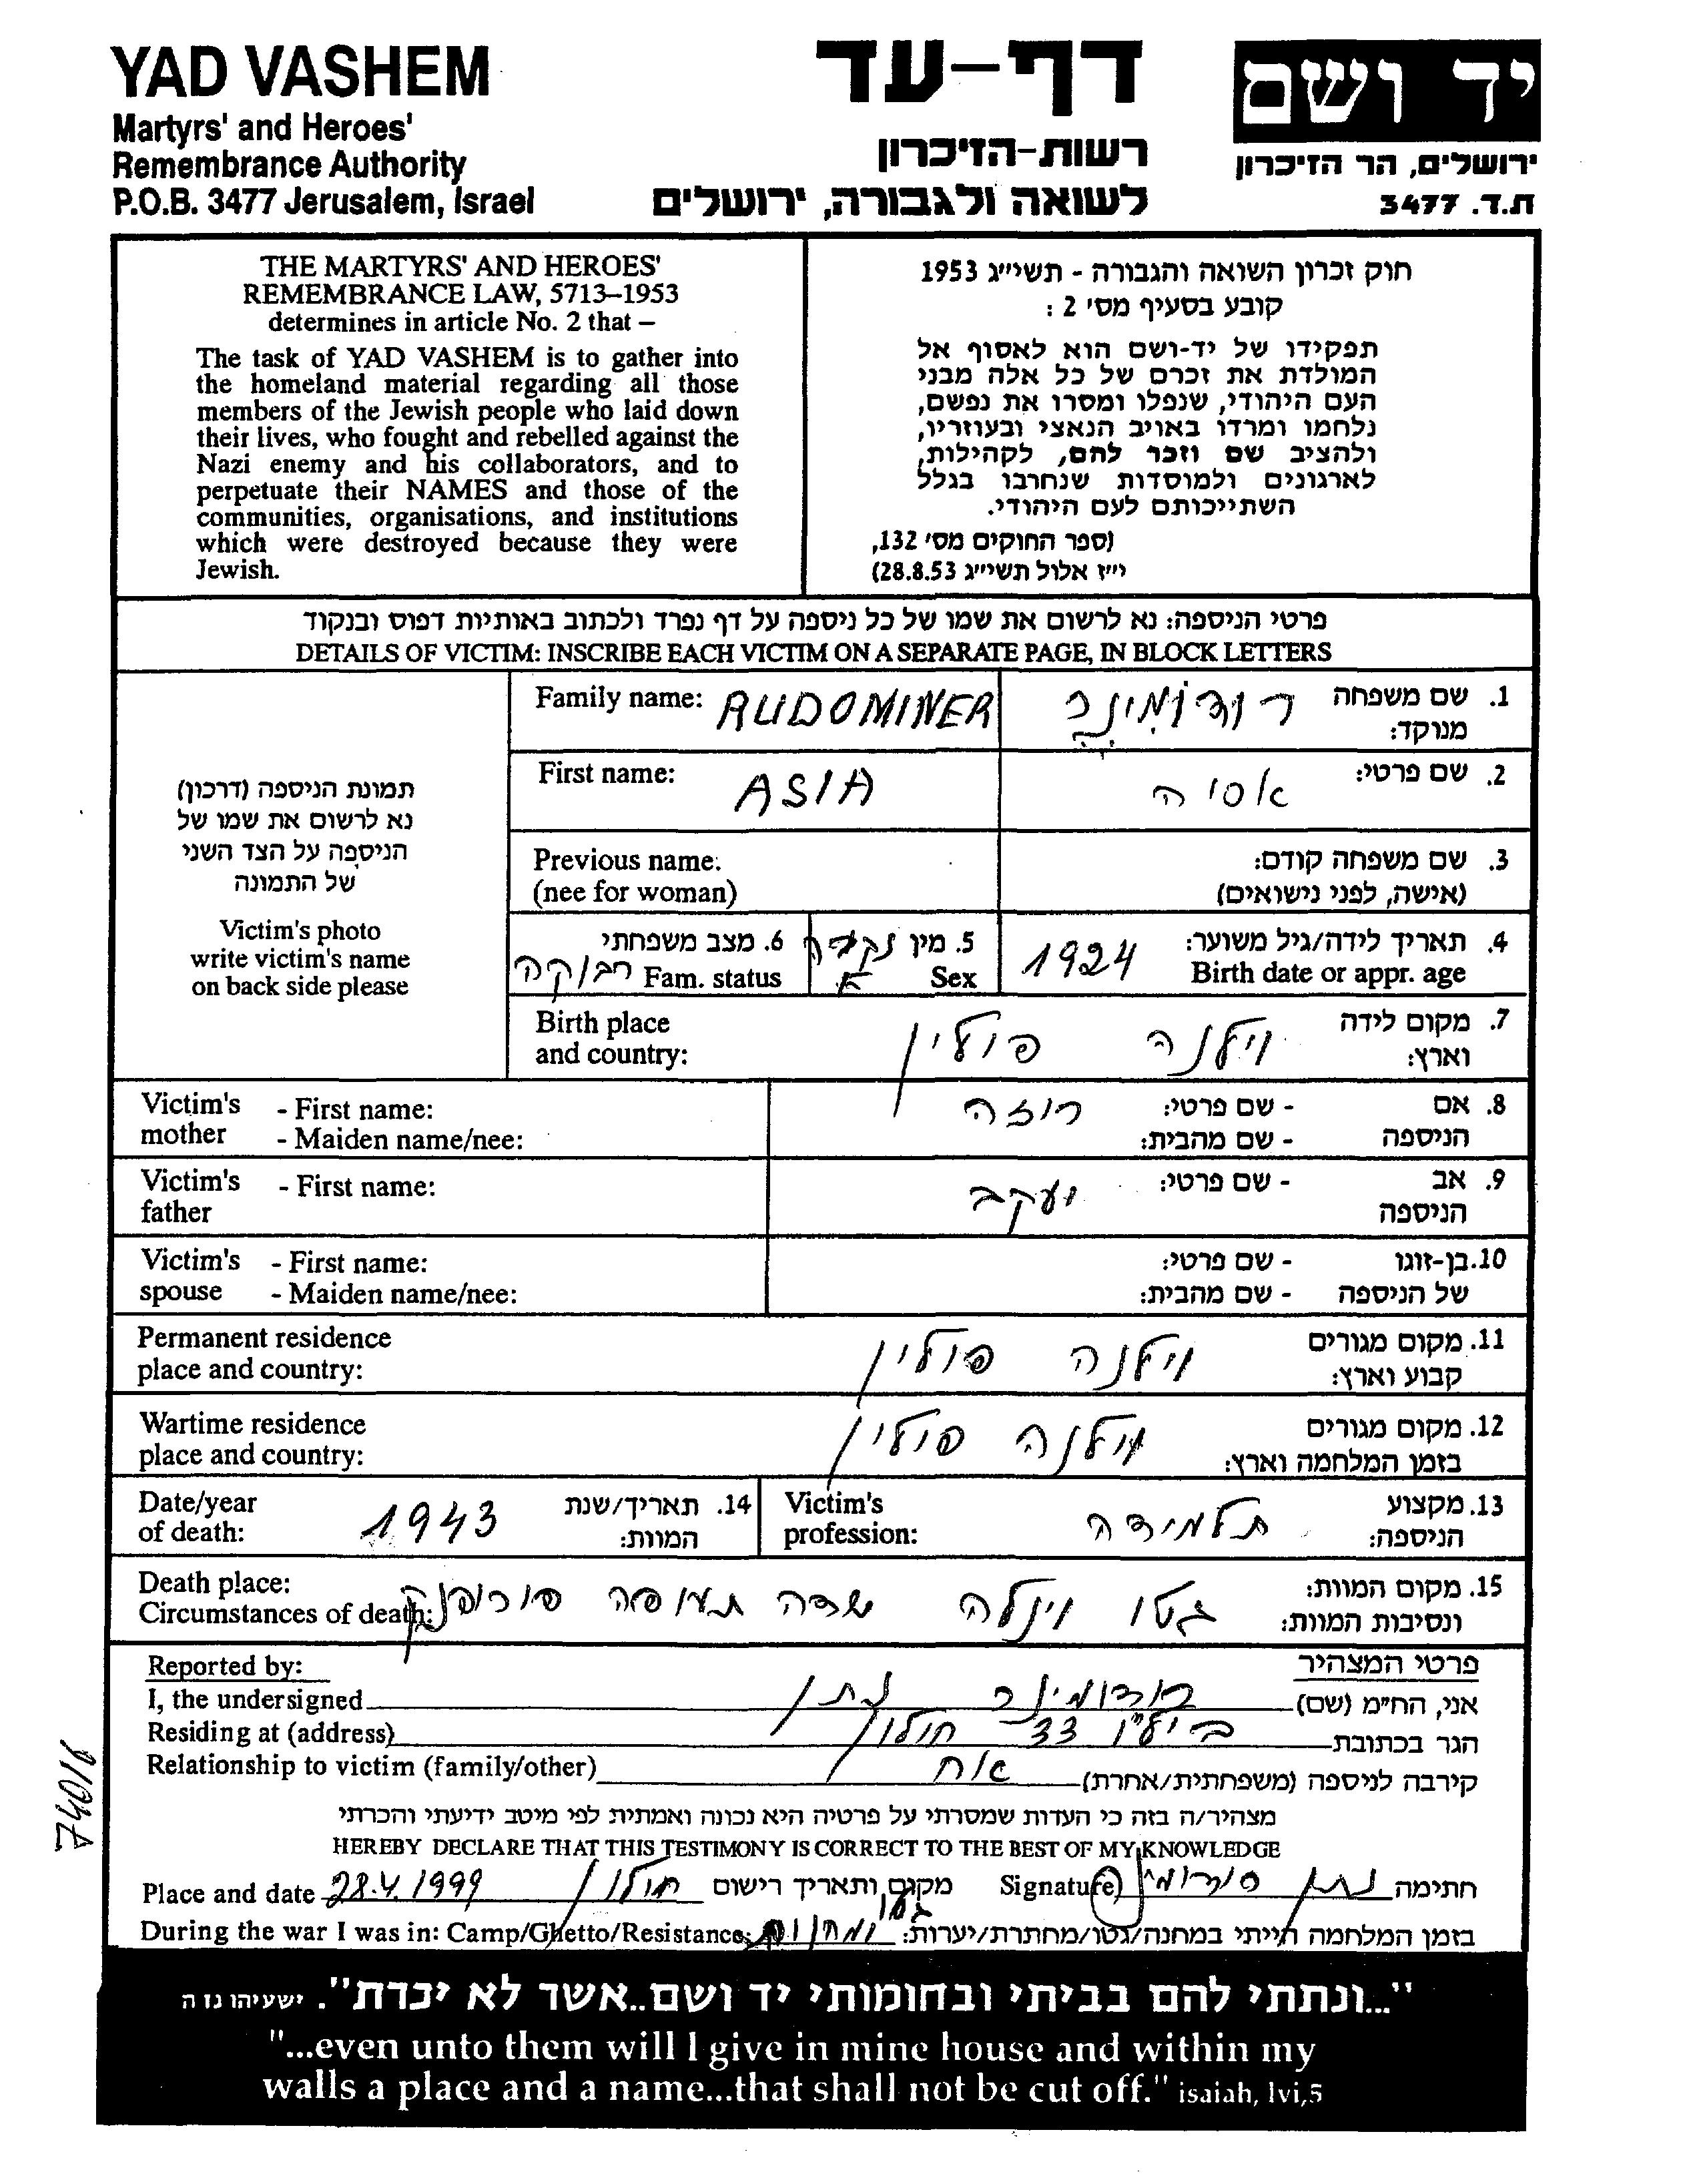 YAD VASHEM
Martyrs' and Heroes'
Remembrance Authority
P.O.B. 3477 Jerusalem, Israel
דף-עד
רשות-הזיכרון
לשואה ולגבורה, ירושלים
יד ושם
ירושלים, הר הזיכרון
ת.ד. 3477
THE MARTYRS' AND HEROES'
REMEMBRANCE LAW, 5713–1953
determines in article No. 2 that –
The task of YAD VASHEM is to gather into
the homeland material regarding all those
members of the Jewish people who laid down
their lives, who fought and rebelled against the
Nazi enemy and his collaborators, and to
perpetuate their NAMES and those of the
communities, organisations, and institutions
which were destroyed because they were
Jewish.
חוק זכרון השואה והגבורה - תשי״ג 1953
קובע בסעיף מס׳ 2 :
תפקידו של יד-ושם הוא לאסוף אל
המולדת את זכרם של כל אלה מבני
העם היהודי, שנפלו ומסרו את נפשם,
נלחמו ומרדו באויב הנאצי ובעוזריו,
ולהציב שם וזכר להם, לקהילות,
לארגונים ולמוסדות שנחרבו בגלל
השתייכותם לעם היהודי.
(ספר החוקים מס׳ 132,
י״ז אלול תשי״ג 28.8.53)
פרטי הניספה: נא לרשום את שמו של כל ניספה על דף נפרד ולכתוב באותיות דפוס ובנקוד
DETAILS OF VICTIM: INSCRIBE EACH VICTIM ON A SEPARATE PAGE, IN BLOCK LETTERS
תמונת הניספה (דרכון)
נא לרשום את שמו של
הניספה על הצד השני
של התמונה
Victim's photo
write victim's name
on back side please
Family name: RUDOMINER רודומינר 1. שם משפחה
מנוקד:
First name: ASIA אסיה 2. שם פרטי:
Previous name: 3. שם משפחה קודם:
(nee for woman) (אישה, לפני נישואים)
6. מצב משפחתי 5. מין נקבה 4. תאריך לידה/גיל משוער:
רווקה Fam. status Sex 1924 Birth date or appr. age
Birth place וילנה פולין 7. מקום לידה
and country: וארץ:
Victim's - First name: רוזה - שם פרטי: 8. אם
mother - Maiden name/nee: - שם מהבית: הניספה
Victim's - First name: יעקב - שם פרטי: 9. אב
father הניספה
Victim's - First name: - שם פרטי: 10. בן-זוגו
spouse - Maiden name/nee: - שם מהבית: של הניספה
Permanent residence וילנה פולין 11. מקום מגורים
place and country: קבוע וארץ:
Wartime residence וילנה פולין 12. מקום מגורים
place and country: בזמן המלחמה וארץ:
Date/year 1943 14. תאריך/שנת Victim's תלמידה 13. מקצוע
of death: המוות: profession: הניספה:
Death place: גטו וילנה שדה תעופה 15. מקום המוות:
Circumstances of death: ונסיבות המוות:
Reported by: פרטי המצהיר
I, the undersigned רודומינר נתן אני, הח״מ (שם)
Residing at (address) ביל״ו 33 חולון הגר בכתובת
Relationship to victim (family/other) אח קירבה לניספה (משפחתית/אחרת)
מצהיר/ה בזה כי העדות שמסרתי על פרטיה היא נכונה ואמתית לפי מיטב ידיעתי והכרתי
HEREBY DECLARE THAT THIS TESTIMONY IS CORRECT TO THE BEST OF MY KNOWLEDGE
Place and date 28.4.1999 חולון מקום ותאריך רישום Signature נתן חתימה
During the war I was in: Camp/Ghetto/Resistance: גטו ומחנות בזמן המלחמה הייתי במחנה/גטו/מחתרת/יערות:
"...ונתתי להם בביתי ובחומותי יד ושם..אשר לא יכרת". ישעיהו נו ה
"...even unto them will I give in mine house and within my
walls a place and a name...that shall not be cut off." isaiah, lvi,5